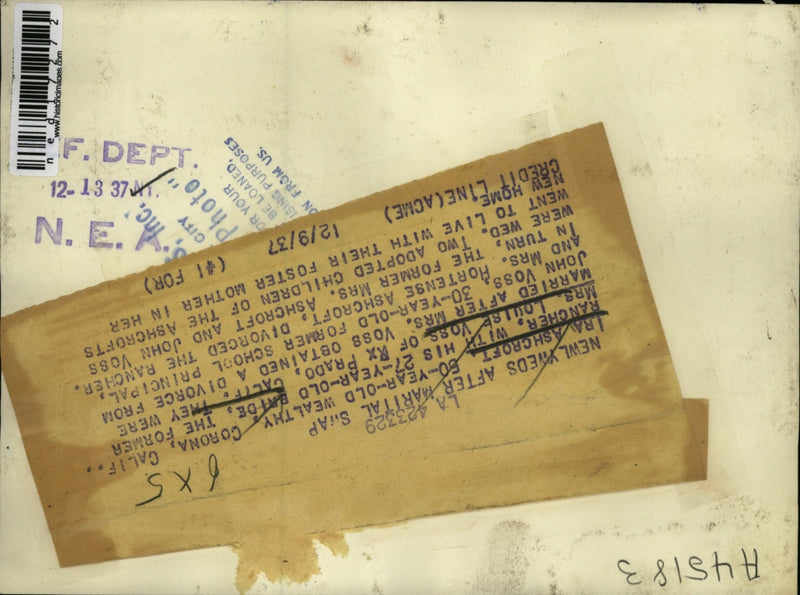 ned17272
www.historicimages.com
F. DEPT.
12-13 37 NY.
N. E. A.
FOR YOUR
BE LOANED,
ISING PURPOSES
ON FROM US.
Photo"
CITY
S, INC.
LA 423329
NEWLYWEDS AFTER MARITAL SWAP
IRA ASHCROFT 60-YEAR-OLD WEALTHY CORONA, CALIF.,
RANCHER, WITH HIS 27-YEAR-OLD BRIDE, THE FORMER
MRS. LOUISE VOSS OF PRADO, CALIF. THEY WERE
MARRIED AFTER MRS. VOSS OBTAINED A DIVORCE FROM
JOHN VOSS, 30-YEAR-OLD FORMER SCHOOL PRINCIPAL,
AND MRS. HORTENSE ASHCROFT DIVORCED THE RANCHER.
IN TURN, THE FORMER MRS. ASHCROFT AND JOHN VOSS
WERE WED. TWO ADOPTED CHILDREN OF THE ASHCROFTS
WENT TO LIVE WITH THEIR FOSTER MOTHER IN HER
NEW HOME.
CREDIT LINE (ACME) 12/9/37 (#1 FOR)
6 X 5
A45183